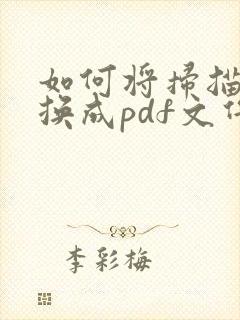 如何将扫描
换成pdf文件
李彩梅